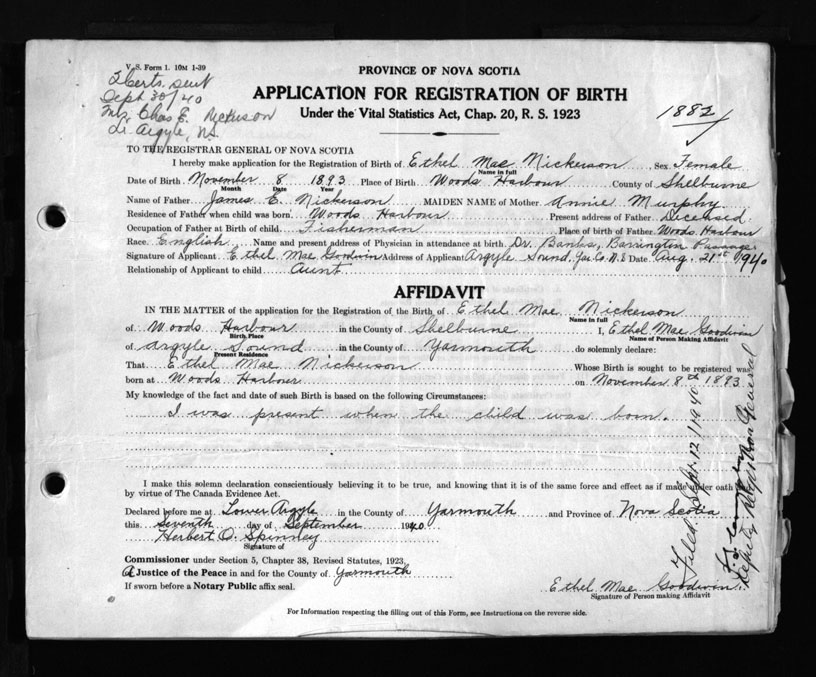 V. S. Form 1. 10M 1-39
Sept 30/40
Mrs. Chas E. Nickerson
Lr. Argyle, N.S.
PROVINCE OF NOVA SCOTIA
APPLICATION FOR REGISTRATION OF BIRTH
Under the Vital Statistics Act, Chap. 20, R. S. 1923
1882
TO THE REGISTRAR GENERAL OF NOVA SCOTIA
I hereby make application for the Registration of Birth of Ethel Mae Nickerson Sex Female
Name in full
Date of Birth November 8 1893 Place of Birth Woods Harbour County of Shelburne
Month Date Year
Name of Father James E. Nickerson MAIDEN NAME of Mother Annie Murphy
Residence of Father when child was born Woods Harbour Present address of Father Deceased
Occupation of Father at Birth of child Fisherman Place of birth of Father Woods Harbour
Race English Name and present address of Physician in attendance at birth Dr. Banks, Barrington Passage
Signature of Applicant Ethel Mae Goodwin Address of Applicant Argyle Sound, Yar. Co. N.S Date Aug. 21st 1940
Relationship of Applicant to child Aunt
AFFIDAVIT
IN THE MATTER of the application for the Registration of the Birth of Ethel Mae Nickerson
Name in full
of Woods Harbour in the County of Shelburne I, Ethel Mae Goodwin
Birth Place Name of Person Making Affidavit
of Argyle Sound in the County of Yarmouth do solemnly declare:
Present Residence
That Ethel Mae Nickerson Whose Birth is sought to be registered was
born at Woods Harbour on November 8th 1893
My knowledge of the fact and date of such Birth is based on the following Circumstances:
I was present when the child was born.
I make this solemn declaration conscientiously believing it to be true, and knowing that it is of the same force and effect as if made under oath
by virtue of The Canada Evidence Act.
Declared before me at Lower Argyle in the County of Yarmouth and Province of Nova Scotia
this Seventh day of September 1940
Herbert O. Spinney
Signature of
Commissioner under Section 5, Chapter 38, Revised Statutes, 1923,
A Justice of the Peace in and for the County of Yarmouth
If sworn before a Notary Public affix seal.
Ethel Mae Goodwin
Signature of Person making Affidavit
For Information respecting the filling out of this Form, see Instructions on the reverse side.
Filed Sept 12/1940
Deputy Registrar General